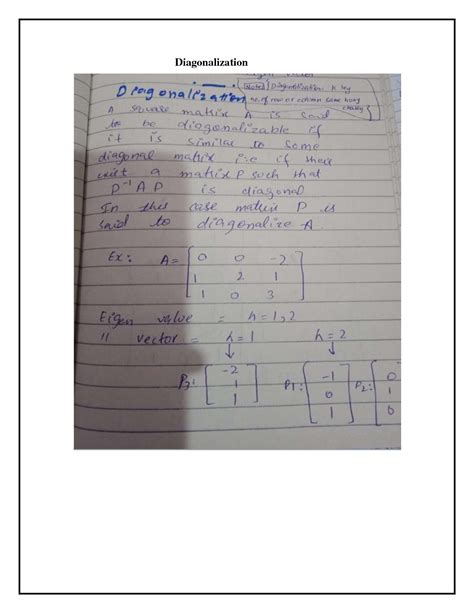 Diagonalization
Eigen vectors
Note: Diagonalization
no. of row or column same hony
Diagonalization
A square matrix A is said
to be diagonalizable if
it is similar to some
diagonal matrix i.e if their
exist a matrix P such that
P⁻¹AP is diagonal
In this case matrix P is
said to diagonalize A.
Ex: A= [0 0 -2
1 2 1
1 0 3]
Eigen value = λ=1,2
" vector = λ=1 λ=2
↓ ↓
P3: [-2 1 1] P1: [-1 0 1] P2: [0 1 0]